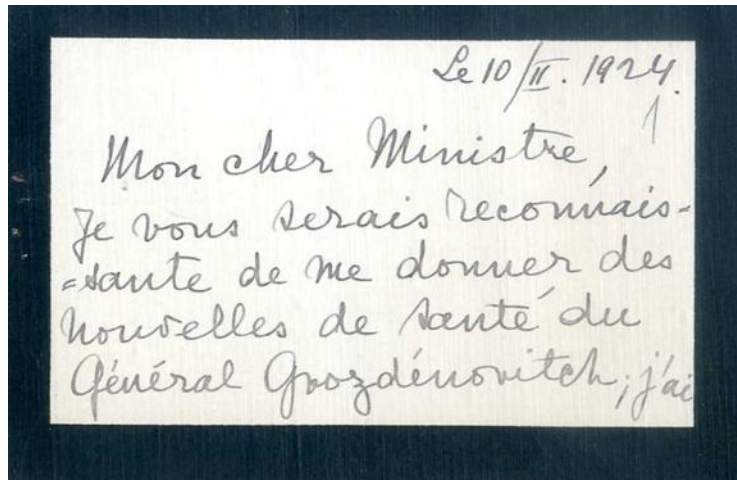 Le 10/II. 1924.
1
Mon cher Ministre,
Je vous serais reconnais-
=sante de me donner des
nouvelles de santé du
Général Gvozdénovitch; j'ai